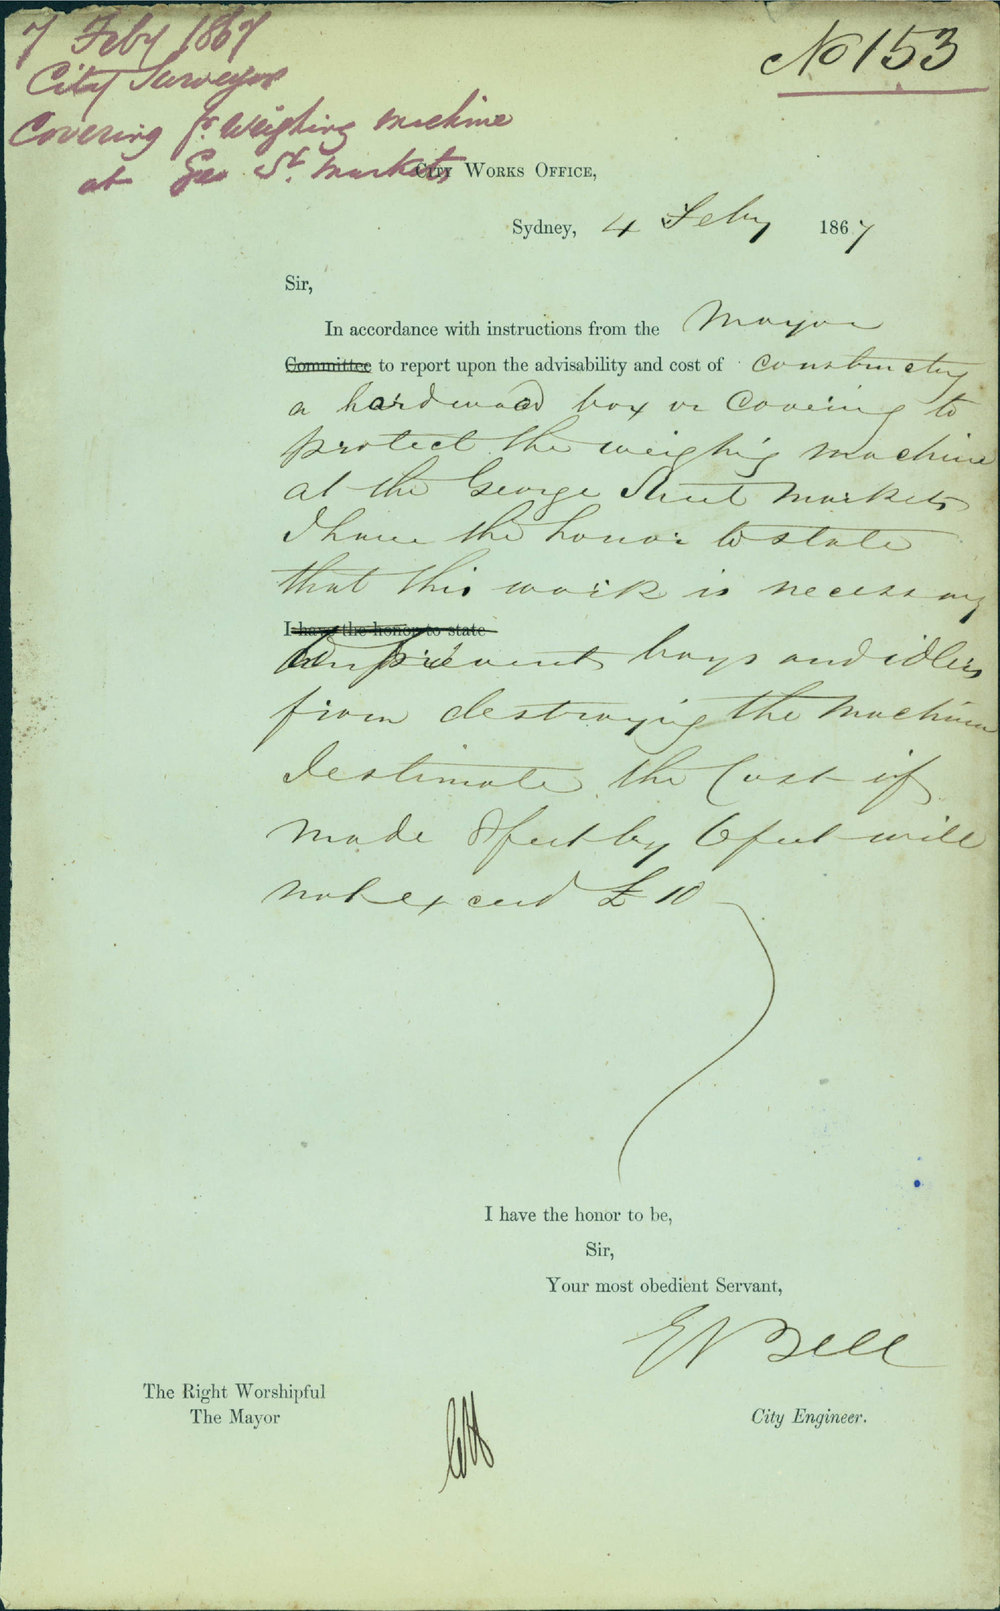 7 Feby 1867
City Surveyor
Covering fr. Weighing Machine
at Geo St. Markets
No 153
City Works Office,
Sydney, 4 Feby 1867
Sir,
In accordance with instructions from the Mayor
Committee to report upon the advisability and cost of constructing
a hardwood box or Covering to
protect the weighing machine
at the George Street Markets
I have the honor to state
that this work is necessary
I have the honor to state
to prevent boys and idlers
from destroying the Machine
I estimate the Cost if
made 8 feet by 6 feet will
not exceed £10
I have the honor to be,
Sir,
Your most obedient Servant,
E Bell
The Right Worshipful
The Mayor
City Engineer.